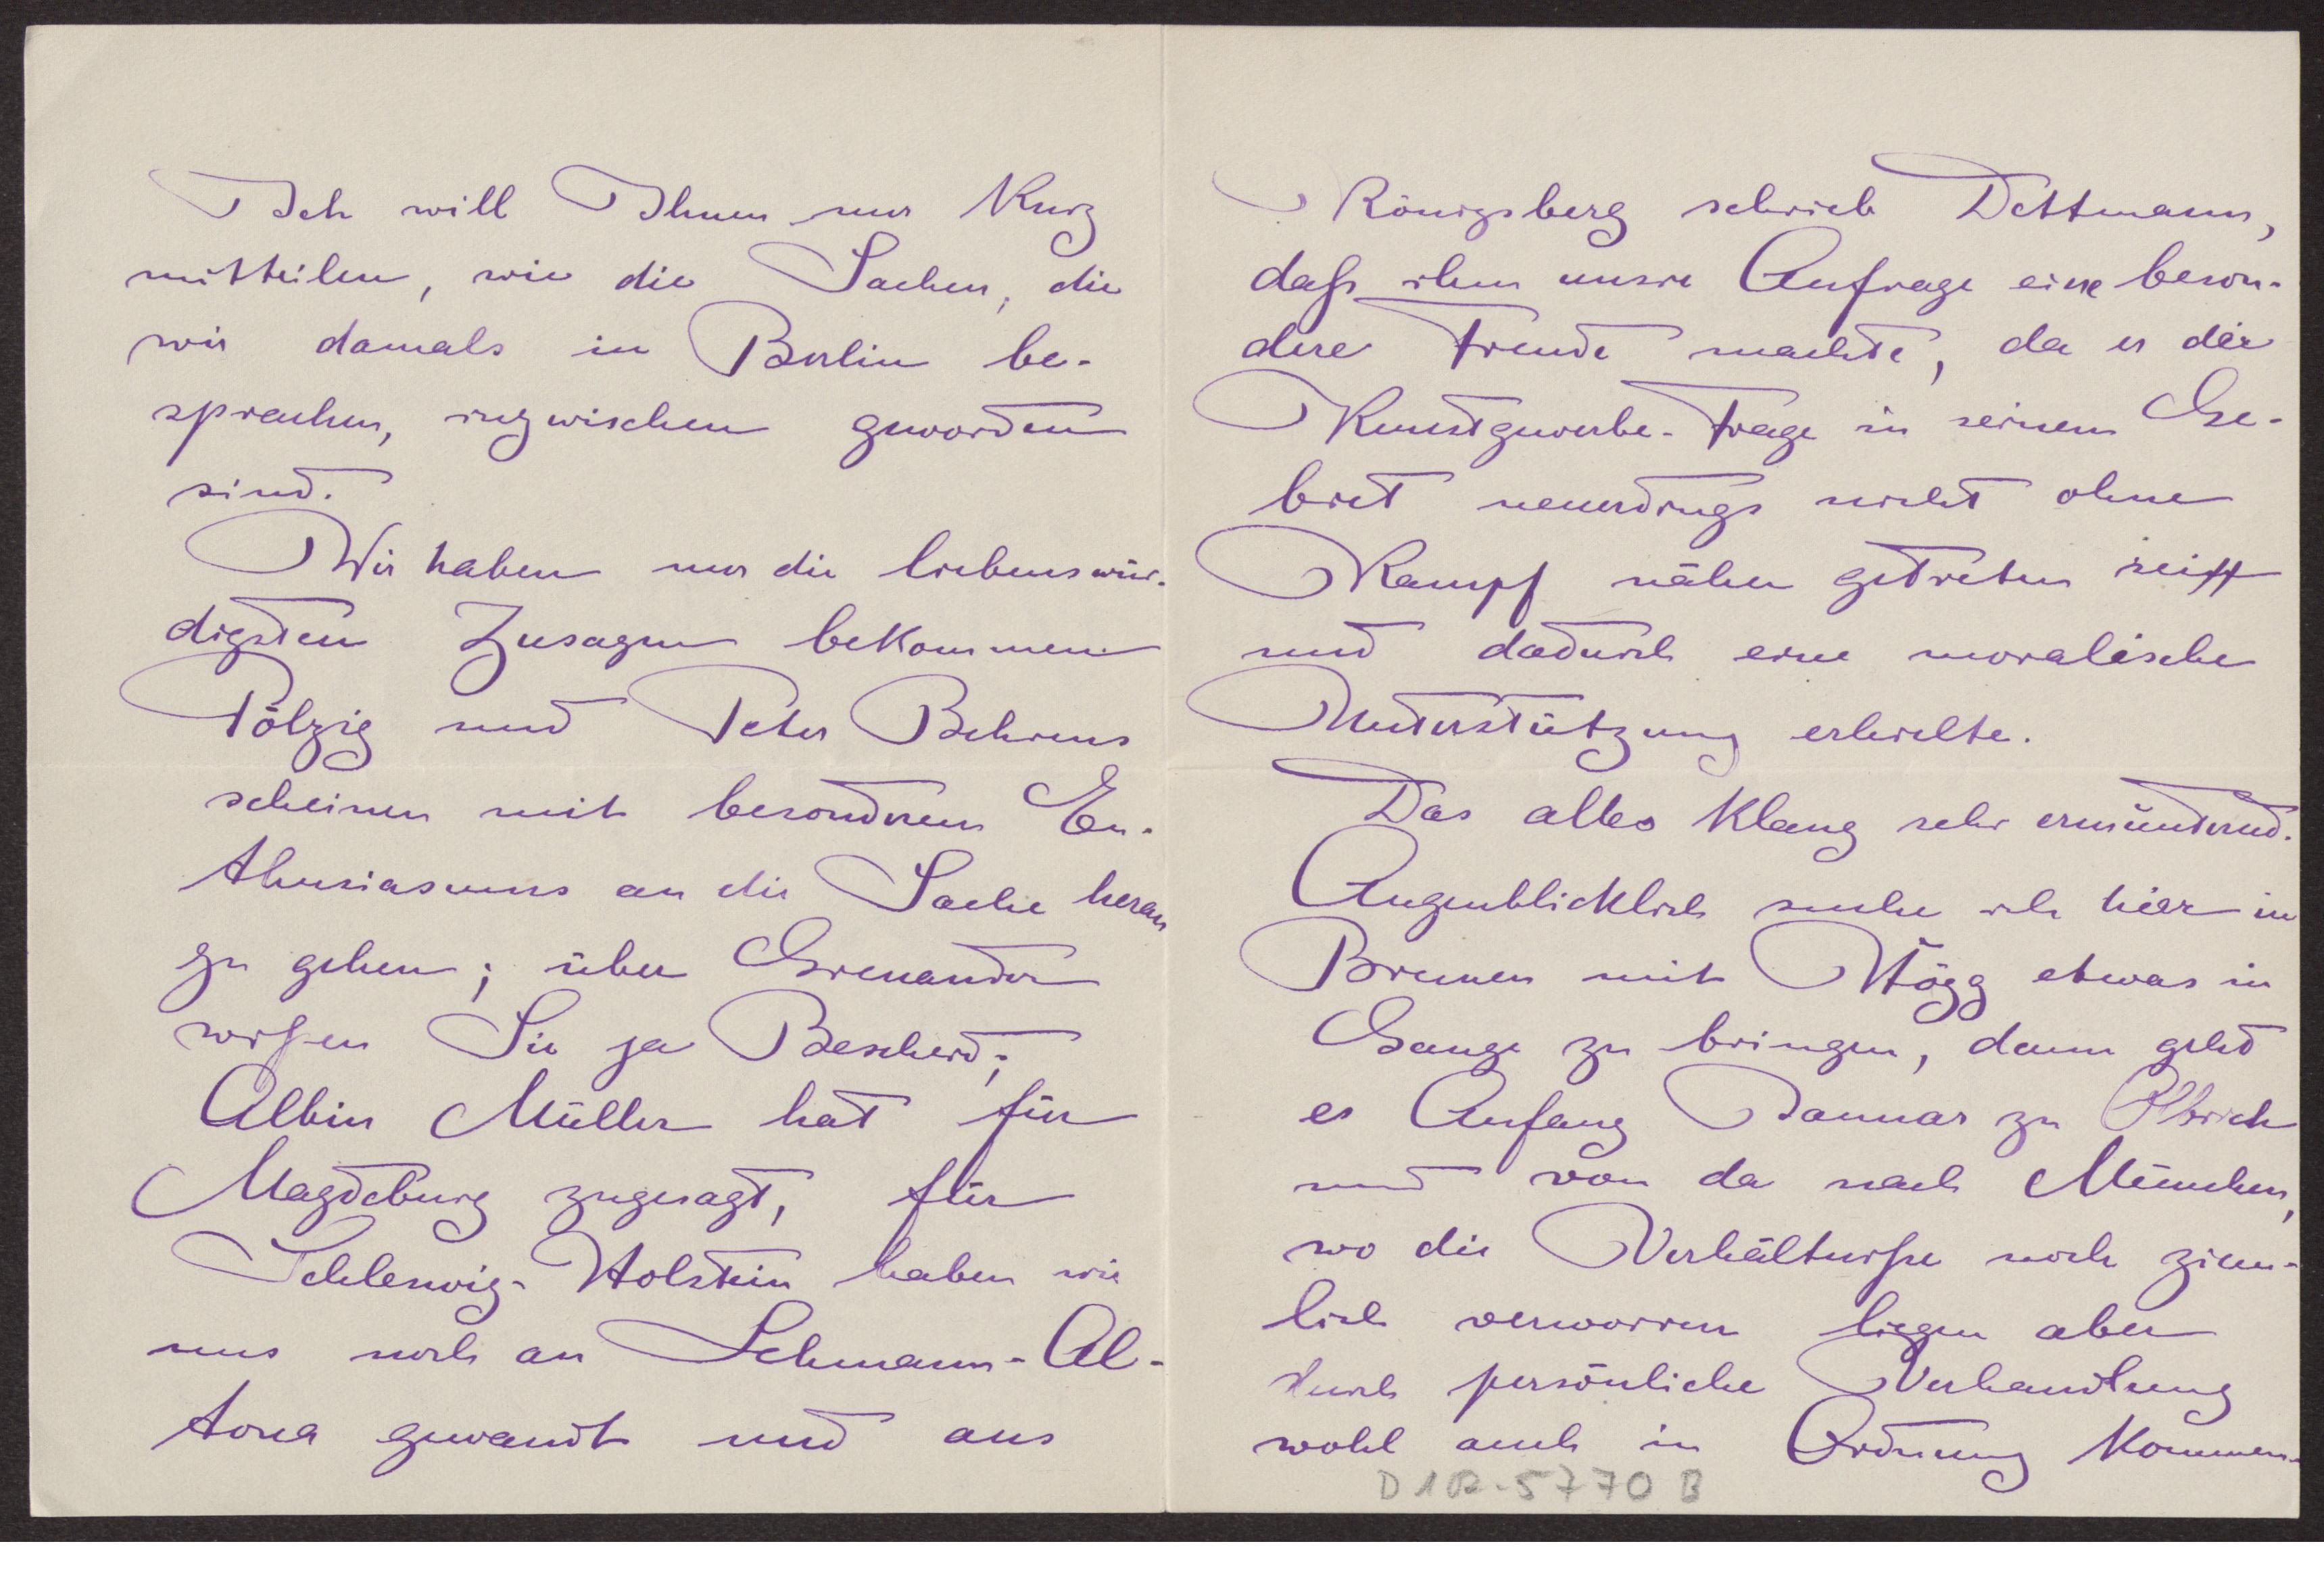 Ich will Ihnen nur kurz
mitteilen, wie die Sachen, die
wir damals in Berlin be-
sprachen, inzwischen geworden
sind.
Wir haben nur die liebenswür-
digsten Zusagen bekommen
Pölzig und Peter Behrens
scheinen mit besonderem En-
thusiasmus an die Sache heran
zu gehen; über Grenander
wissen Sie ja Bescheid;
Albin Müller hat für
Magdeburg zugesagt, für
Schleswig-Holstein haben wir
uns noch an Lehmann-Al-
tona gewandt und aus
Königsberg schrieb Dettmann,
daß ihm unsre Anfrage eine beson-
dere Freude machte, da er der
Kunstgewerbe-Frage in seinem Ge-
biet neuerdings nicht ohne
Kampf näher getreten sei
und dadurch eine moralische
Unterstützung erhielte.
Das alles klang sehr ermunternd.
Augenblicklich suche ich hier in
Bremen mit Högg etwas in
Gange zu bringen, dann geht
es Anfang Januar zu Olbrich
und von da nach München,
wo die Verhältnisse noch ziem-
lich verworren liegen aber
durch persönliche Verhandlung
wohl auch in Ordnung kommen.
D 1R-5770 B